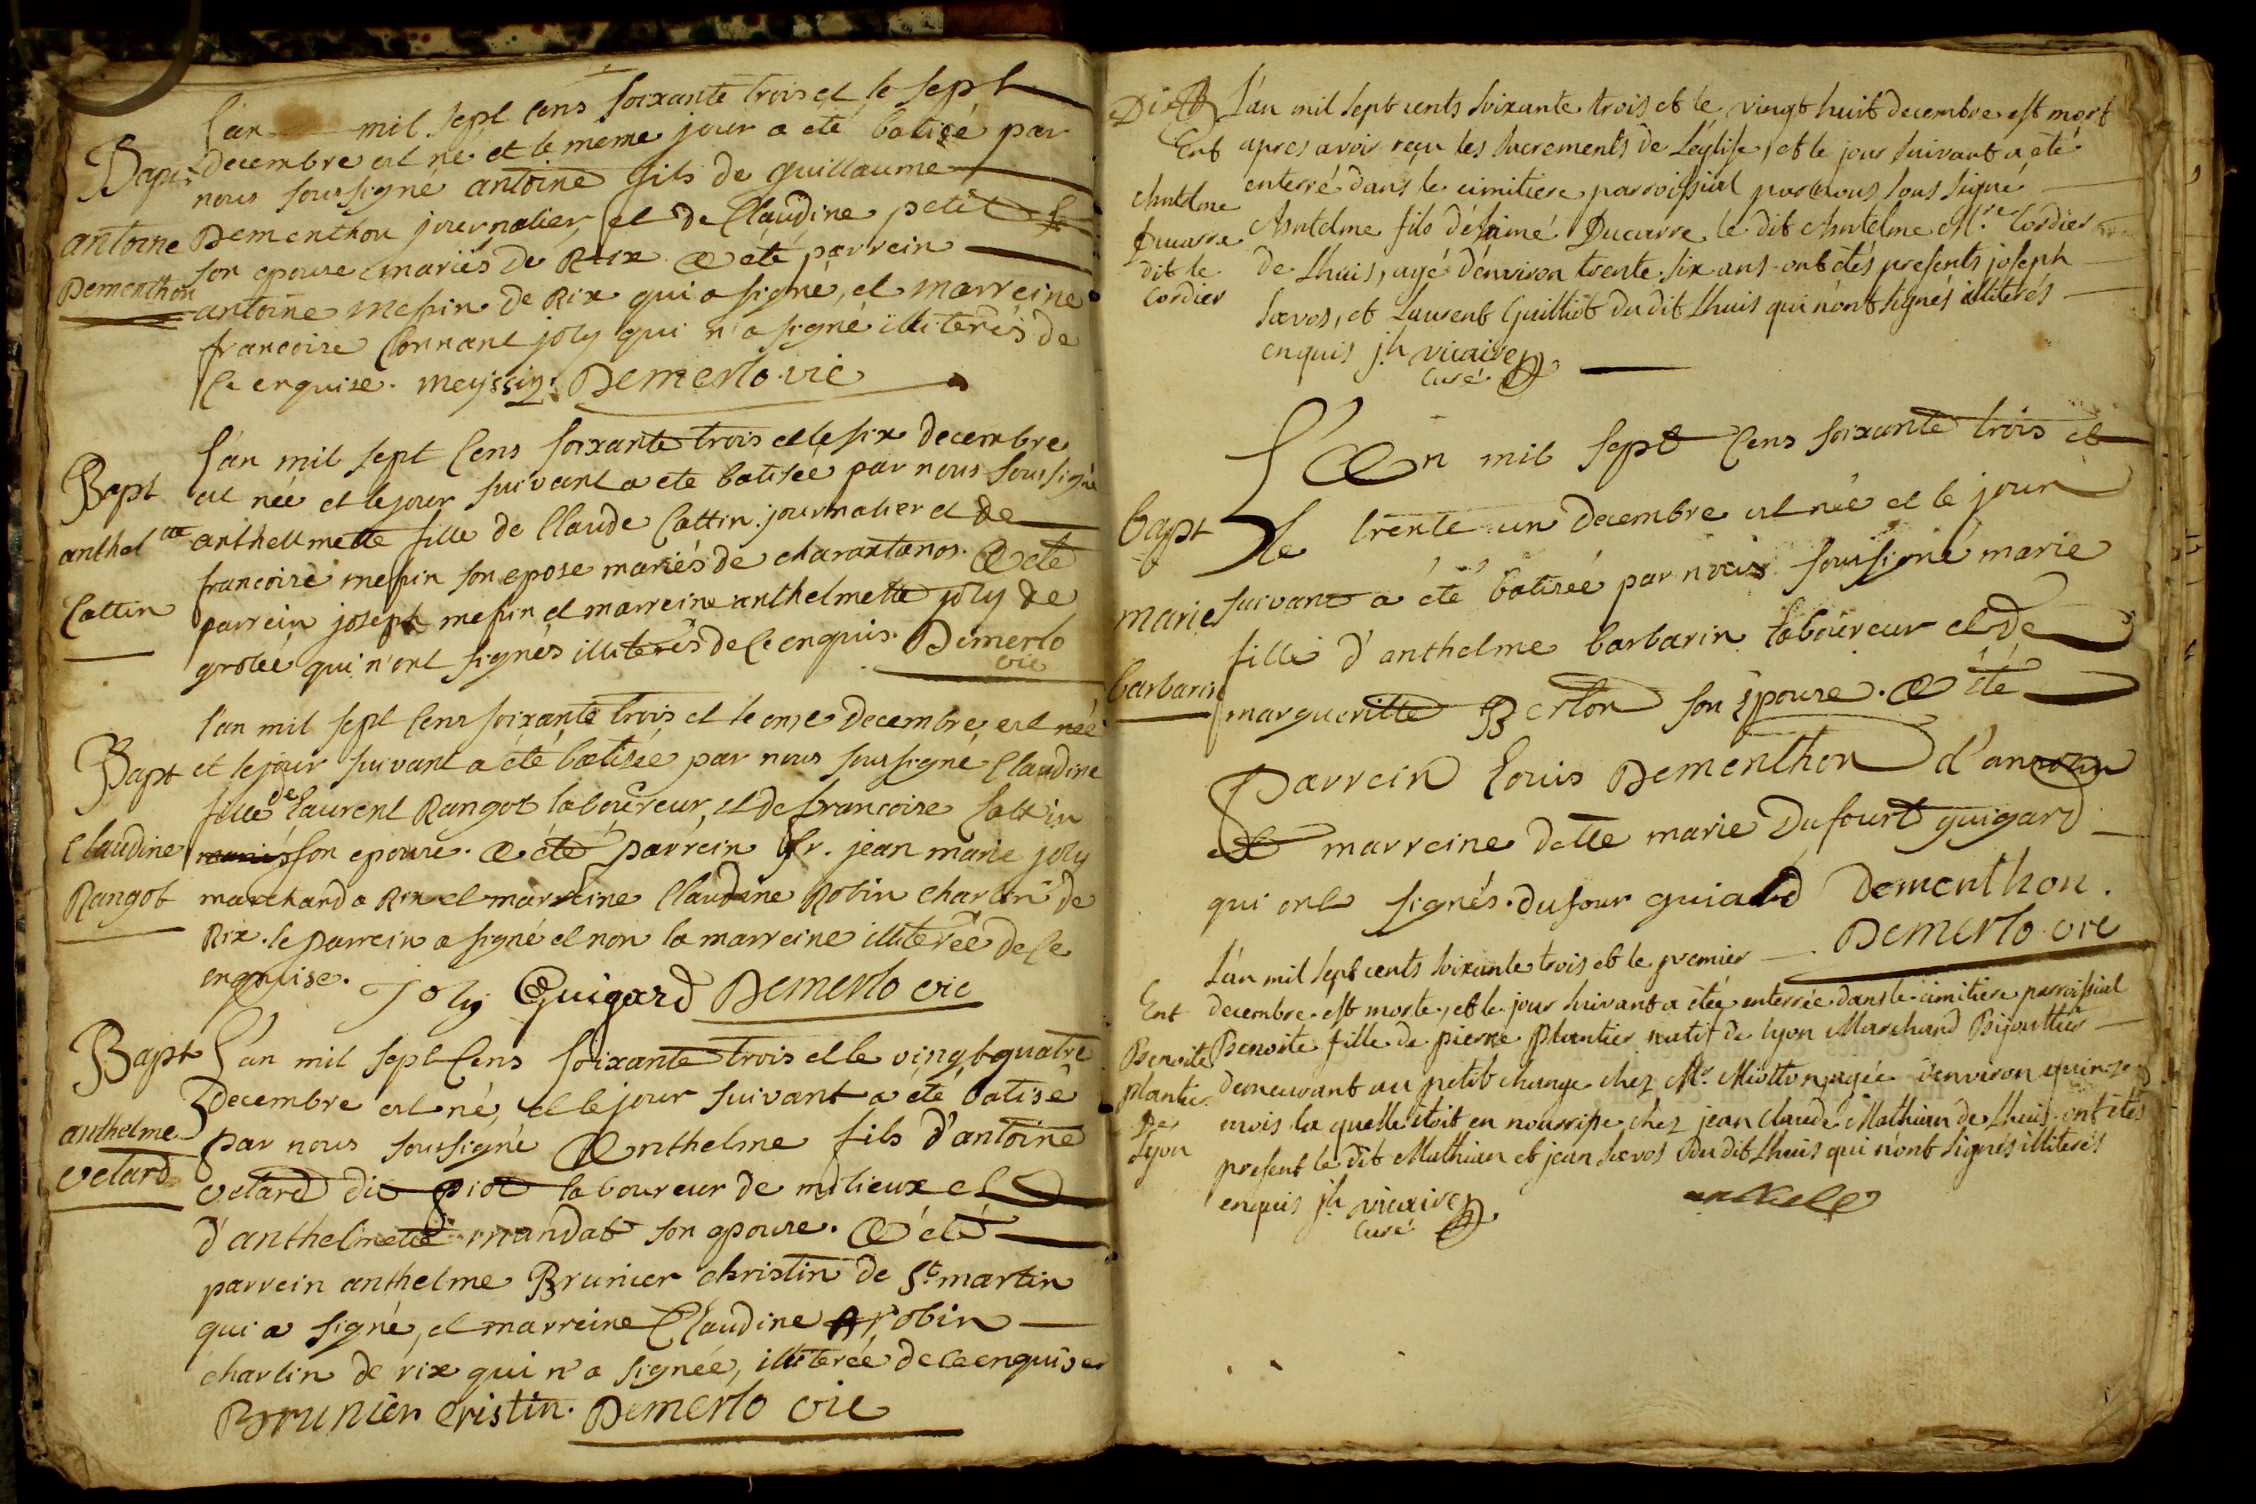 L'an mil sept Cens soixante trois et le sept
Bapt decembre est né et le meme jour a eté batisé par
nous soussigné antoine fils de guillaume
antoine Dementhon journalier, et de Claudine petit
Dementhon son epouse mariés de Rix. A eté parrein
antoine messin de Rix qui a signé, et marreine
francoise Connant joly qui n'a signé illiterés de
Ce enquise. meyssin. Demerlo vic
L'an mil sept Cens soixante trois et le six decembre
Bapt est née et le jour suivant a eté batisée par nous soussigné
anthel tte anthelmette fille de Claude Cattin journalier et de
francoise messin son epose mariés de charantanos. A eté
Cattin parrein joseph messin et marreine anthelmette joly de
grolée qui n'ont signés illiterés de Ce enquis. Demerlo
vic
l'an mil sept Cens soixante trois et le onze decembre est née
Bapt et le jour suivant a été batisée par nous soussigné Claudine
fille de laurent Rangot laboureur, et de francoise Cattin
Claudine mariés son epouse. A été parrein Sr. jean marie joly
Rangot marchand a Rix et marreine Claudine Robin charlin de
Rix. le parrein a signé et non la marreine illiterée de Ce
enquise. Joly Guigard Demerlo vic
Bapt L'an mil sept Cens soixante trois et le vingt quatre
decembre est né, et le jour suivant a été batisé
anthelme par nous soussigné Anthelme fils d'antoine
vetard vetard dit piot laboureur de milieux et
d'anthelmette mandat son epouse. A été
parrein anthelme Brunier christin de St martin
qui a signé, et marreine Claudine robin
charlin de rix qui n'a signée, illiterée de ce enquise
Brunier cristin. Demerlo vic
L'an mil sept cents soixante trois et le vingt huit decembre est mort
Ent apres avoir reçu les sacrements de L'église, et le jour suivant a été
enterré dans le cimitiere parroissial par nous sous signé
Anthelme Anthelme fils d'Aimé Ducarre le dit Anthelme Cordier
Ducarre de Lhuis, agé d'environ trente six ans ont étés presents joseph
dit le
Cordier Sævos, et Laurent Guilliot du dit Lhuis qui n'ont signés illiterés
enquis jh vicaire
Curé
L'An mil sept Cens soixante trois et
Bapt le trente un decembre est née et le jour
marie suivant a été batisée par nous soussigné marie
fille d'anthelme barbarin laboureur et de
barbarin margueritte Berlon son Epouse. A été
Parrein Louis Dementhon d'
et marreine dette marie Dufourt guigard
qui ont signés. dufour guiard Dementhon.
Demerlo vic
L'an mil sept cents soixante trois et le premier
Ent decembre est morte, et le jour suivant a étée enterrée dans le cimitiere parroissial
Benoite Benoite fille de pierre Plantier natif de lyon Marchand Bijouttier
plantier demeurant au petit change chez Mr. Miotton, agée d'environ quinze
De mois la quelle étoit en nourrise chez jean Claude Mathian de Lhuis ont étés
Lyon present le dit Mathian et jean Sævos du dit Lhuis qui n'ont signés illiterés
enquis jh vicaire
Curé